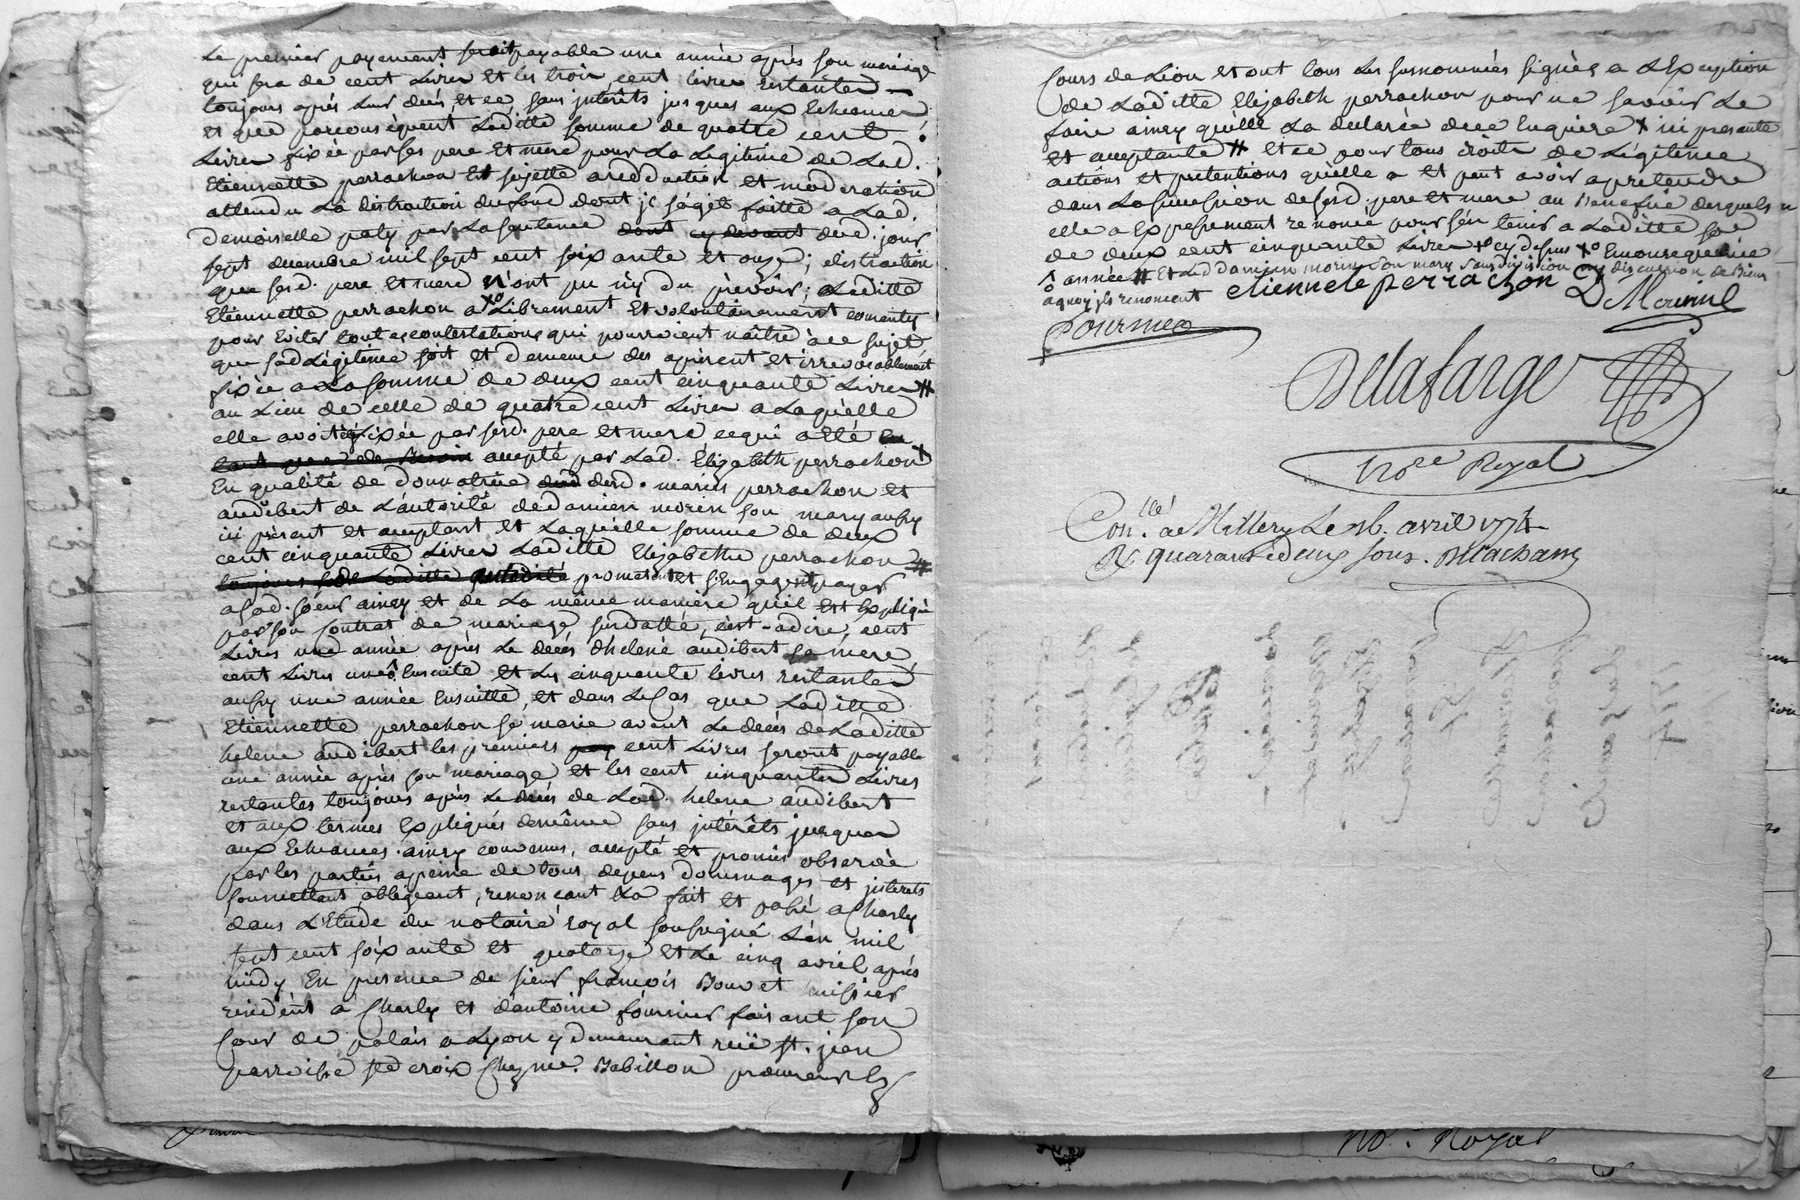 Le premier payement seroit payable une année après son mariage
qui sera de cent Livres Et les trois cent livres restantes
toujours après Leur decés Et ce sans jntérêts jusques aux Echeances
Et que par conséquent Laditte somme de quatre cent
Livres fixée par ses pere Et mere pour La Legitime de Lad.
Etiennette perrachon Est sujette a reduction et moderation
attendu La distraction du fond dont jl s'agit faitte a Lad.
Demoiselle paty par La sentence dud. jour
sept decembre mil sept cent soixante et onze; distraction
que sesd. pere et mere n'ont pu ny du prévoir; Laditte
Etiennette perrachon a Librement Et volontairement consenty
pour Eviter touttes contestations qui pourroient naître à ce sujet
que sad Légitime soit et demeure des àprésent et irrevocablement
fixée a La somme de deux cent cinquante Livres #
au Lieu de celle de quatre cent Livres a Laquelle
elle avoit été fixée par sesd. pere et mere ce qui a Eté
accepté par Lad. Élizabeth perrachon x
En qualité de donnatrice desd. maries perrachon et
audibert de L'autorité de damien morin son mary aussy
ici présent et acceptant et Laquelle somme de deux
cent cinquante Livres Laditte Elizabeth perrachon #
promettent et s'Engagent payer
a sad. soeur ainsy et de La même maniere qu'il Est Expliqué
par son Contrat de mariage susdatté, c'est-adire, cent
Livres une année après le decés d'helene audibert sa mere
cent Livres une Ensuite et Les cinquante livres restantes
aussy une année Ensuitte, et dans Le Cas que Laditte
Etiennette perrachon se marie avant Le decés de Laditte
helene audibert les premiers cent Livres seront payable
une année après son mariage et les cent cinquante Livres
restantes toujours après Le decés de Lad. helene audibert
et aux termes Expliqués de même sans jntérêts jusques
aux Echeances. ainsy convenus, accepté et promis observer
par les parties a peine de tous depens dommages et jnterets
soumettant obligeant, renonçant &a fait et passé a Charly
dans L'Etude du notaire royal soussigné L'an mil
sept cent soixante et quatorze et Le cinq avril après
midy En presence de sieur françois Bouvet huissier
résident à Charly et d'antoine fournier faisant son
Cour de palais a Lyon y demeurant rüe St. jean
parroisse ste croix Chez me. Babillon procureur Ez
Cours de Lion et ont tous Les surnommés signés a L'Exception
de Laditte Elizabeth perrachon pour ne savoir Le
faire ainsy qu'elle La declarée de ce Enquise x ici presante
et acceptante # et ce pour tous droits de Légitime
actions et pretentions qu'elle a et peut avoir a pretendre
dans La succession de sesd. pere et mere au Benefice desquels
elle a Expressement renoncé pour s'en tenir a Laditte some
de deux cent cinquante Livres cy dessus
année # Et Led damien morin son mary sans division ny discussion de Biens
a quoy ils renoncent etiennete perrachon D Morin
fournier
Delafarge
nore Royal
Conllé a Millery Le 16. avril 1774
R quarante deux sous.
No. Royal